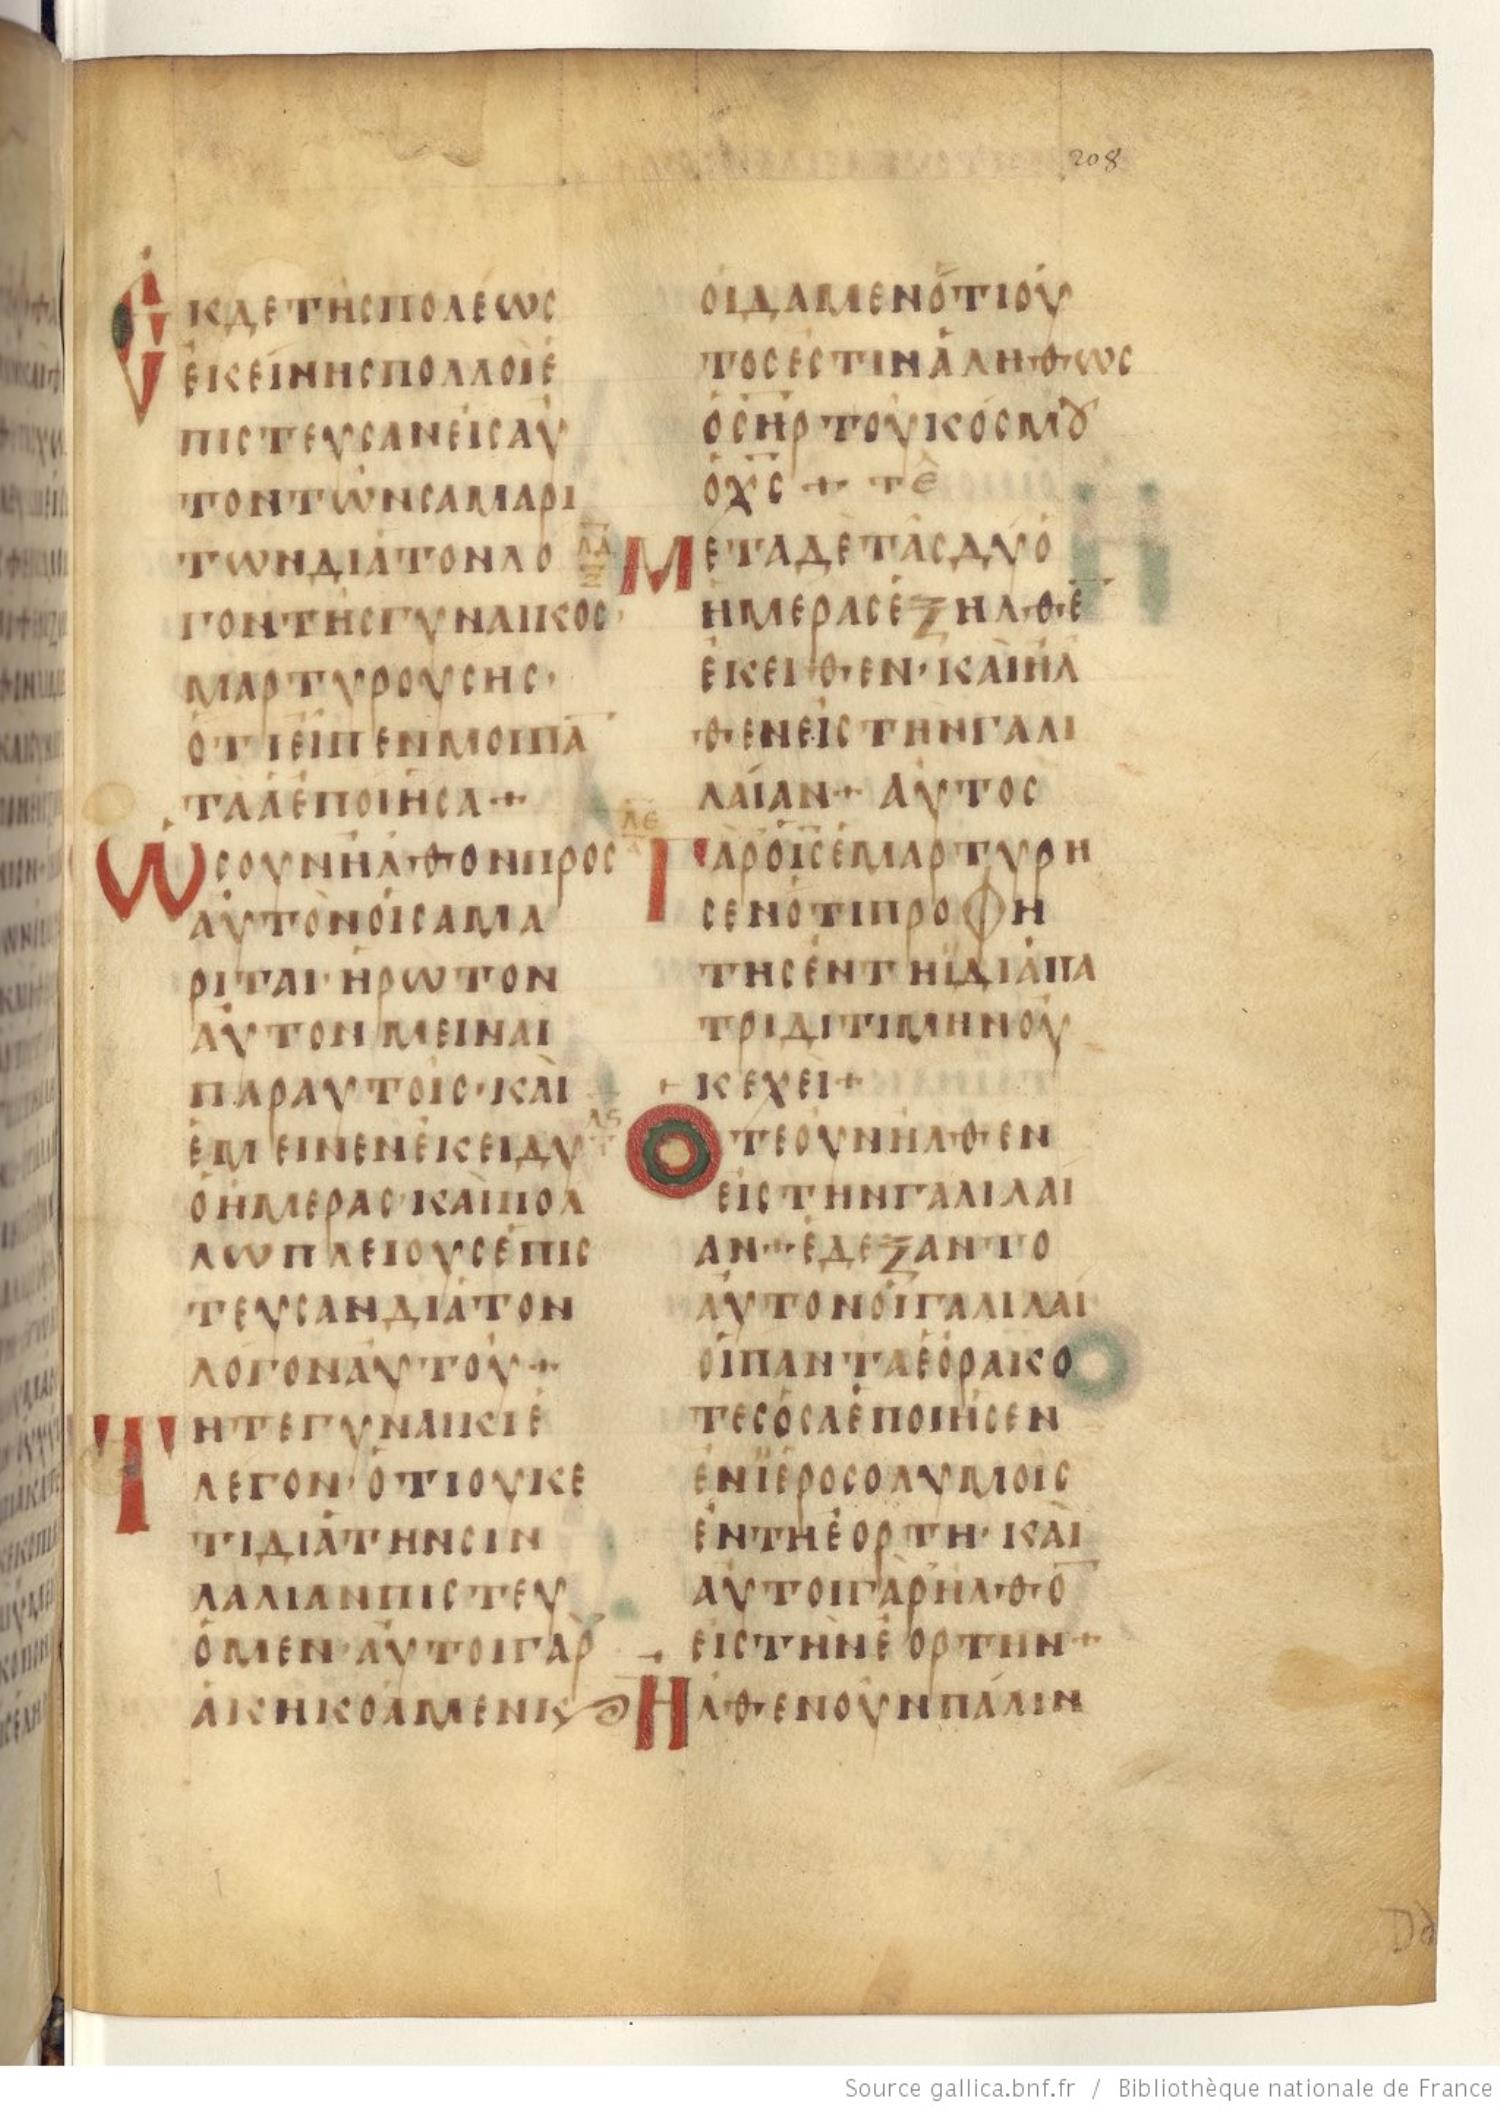 208
ΕΚΔΕΤΗϹΠΟΛΕΩϹ
ΕΚΕΙΝΗϹΠΟΛΛΟΙΕ
ΠΙϹΤΕΥϹΑΝΕΙϹΑΥ
ΤΟΝΤΩΝϹΑΜΑΡΙ
ΤΩΝΔΙΑΤΟΝΛΟ
ΓΟΝΤΗϹΓΥΝΑΙΚΟϹ
ΜΑΡΤΥΡΟΥϹΗϹ·
ΟΤΙΕΙΠΕΝΜΟΙΠᾹ
ΤΑΑΕΠΟΙΗϹΑ+
ΩϹΟΥΝΗΛΘΟΝΠΡΟϹ
ΑΥΤΟΝΟΙϹΑΜΑ
ΡΙΤΑΙ·ΗΡΩΤΟΝ
ΑΥΤΟΝΜΕΙΝΑΙ
ΠΑΡΑΥΤΟΙϹ·ΚΑΙ
ΕΜΕΙΝΕΝΕΚΕΙΔΥ
ΟΗΜΕΡΑϹ·ΚΑΙΠΟΛ
ΛΩΠΛΕΙΟΥϹΕΠΙϹ
ΤΕΥϹΑΝΔΙΑΤΟΝ
ΛΟΓΟΝΑΥΤΟΥ+
ΤΗΤΕΓΥΝΑΙΚΙΕ
ΛΕΓΟΝ·ΟΤΙΟΥΚΕ
ΤΙΔΙΑΤΗΝϹΙΝ
ΛΑΛΙΑΝΠΙϹΤΕΥ
ΟΜΕΝ·ΑΥΤΟΙΓΑΡ
ΑΚΗΚΟΑΜΕΝΚϗ
ΟΙΔΑΜΕΝΟΤΙΟΥ
ΤΟϹΕϹΤΙΝΑΛΗΘΩϹ
ΟϹΗΡΤΟΥΚΟϹΜȢ
ΟΧϹ + ΤΕ
ΛΔ
ΜΕΤΑΔΕΤΑϹΔΥΟ
ΗΜΕΡΑϹΕΞΗΛΘΕ̄
ΕΚΕΙΘΕΝ·ΚΑΙΗΛ
ΘΕΝΕΙϹΤΗΝΓΑΛΙ
ΛΑΙΑΝ+ ΑΥΤΟϹ
ΛΕ
ΓΑΡΟΙϹΕΜΑΡΤΥΡΗ
ϹΕΝΟΤΙΠΡΟΦΗ
ΤΗϹΕΝΤΗΪΔΙΑΠΑ
ΤΡΙΔΙΤΙΜΗΝΟΥ
ΚΕΧΕΙ+
ΛϚ
ΟΤΕΟΥΝΗΛΘΕΝ
ΕΙϹΤΗΝΓΑΛΙΛΑΙ
ΑΝ+ΕΔΕΞΑΝΤΟ
ΑΥΤΟΝΟΙΓΑΛΙΛΑΙ
ΟΙΠΑΝΤΑΕΟΡΑΚΟ
ΤΕϹΟϹΑΕΠΟΙΗϹΕΝ
ΕΝΪΕΡΟϹΟΛΥΜΟΙϹ
ΕΝΤΗΕΟΡΤΗ·ΚΑΙ
ΑΥΤΟΙΓΑΡΗΛΘΟ̄
ΕΙϹΤΗΝΕΟΡΤΗΝ+
ΗΛΘΕΝΟΥΝΠΑΛΙΝ
Source gallica.bnf.fr / Bibliothèque nationale de France